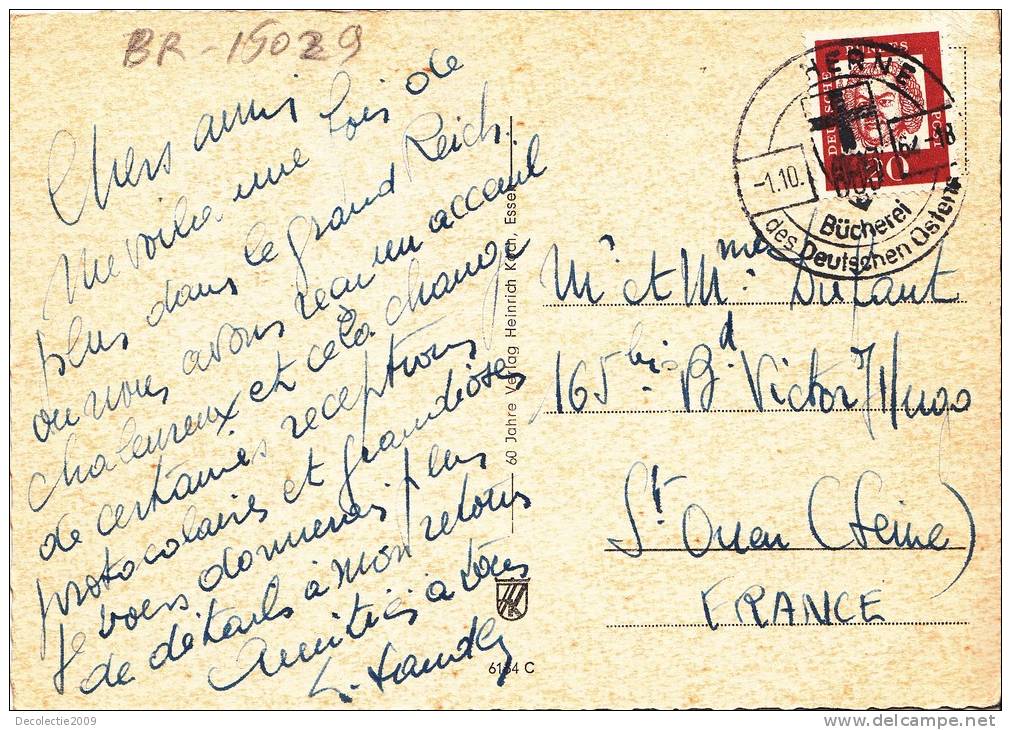 BR - 15029
Chers amis
Me voilà une fois de
plus dans le grand Reich
ou nous avons recu un accueil
chaleureux et cela change
de certaines receptions
protocolaires et grandioses
Je vous donnerai plus
de détails à mon retour
Amitiés à tous
60 Jahre Verlag Heinrich Koch, Essen
6184 C
HERNE
-1.10.
64-18
Bücherei
des Deutschen Ostens
DEUTSCHE
BUNDES
POST
M. et Mme. Dufaut
165 bis Bd Victor Hugo
St Ouen (Seine)
FRANCE
Decolectie2009
www.delcampe.net